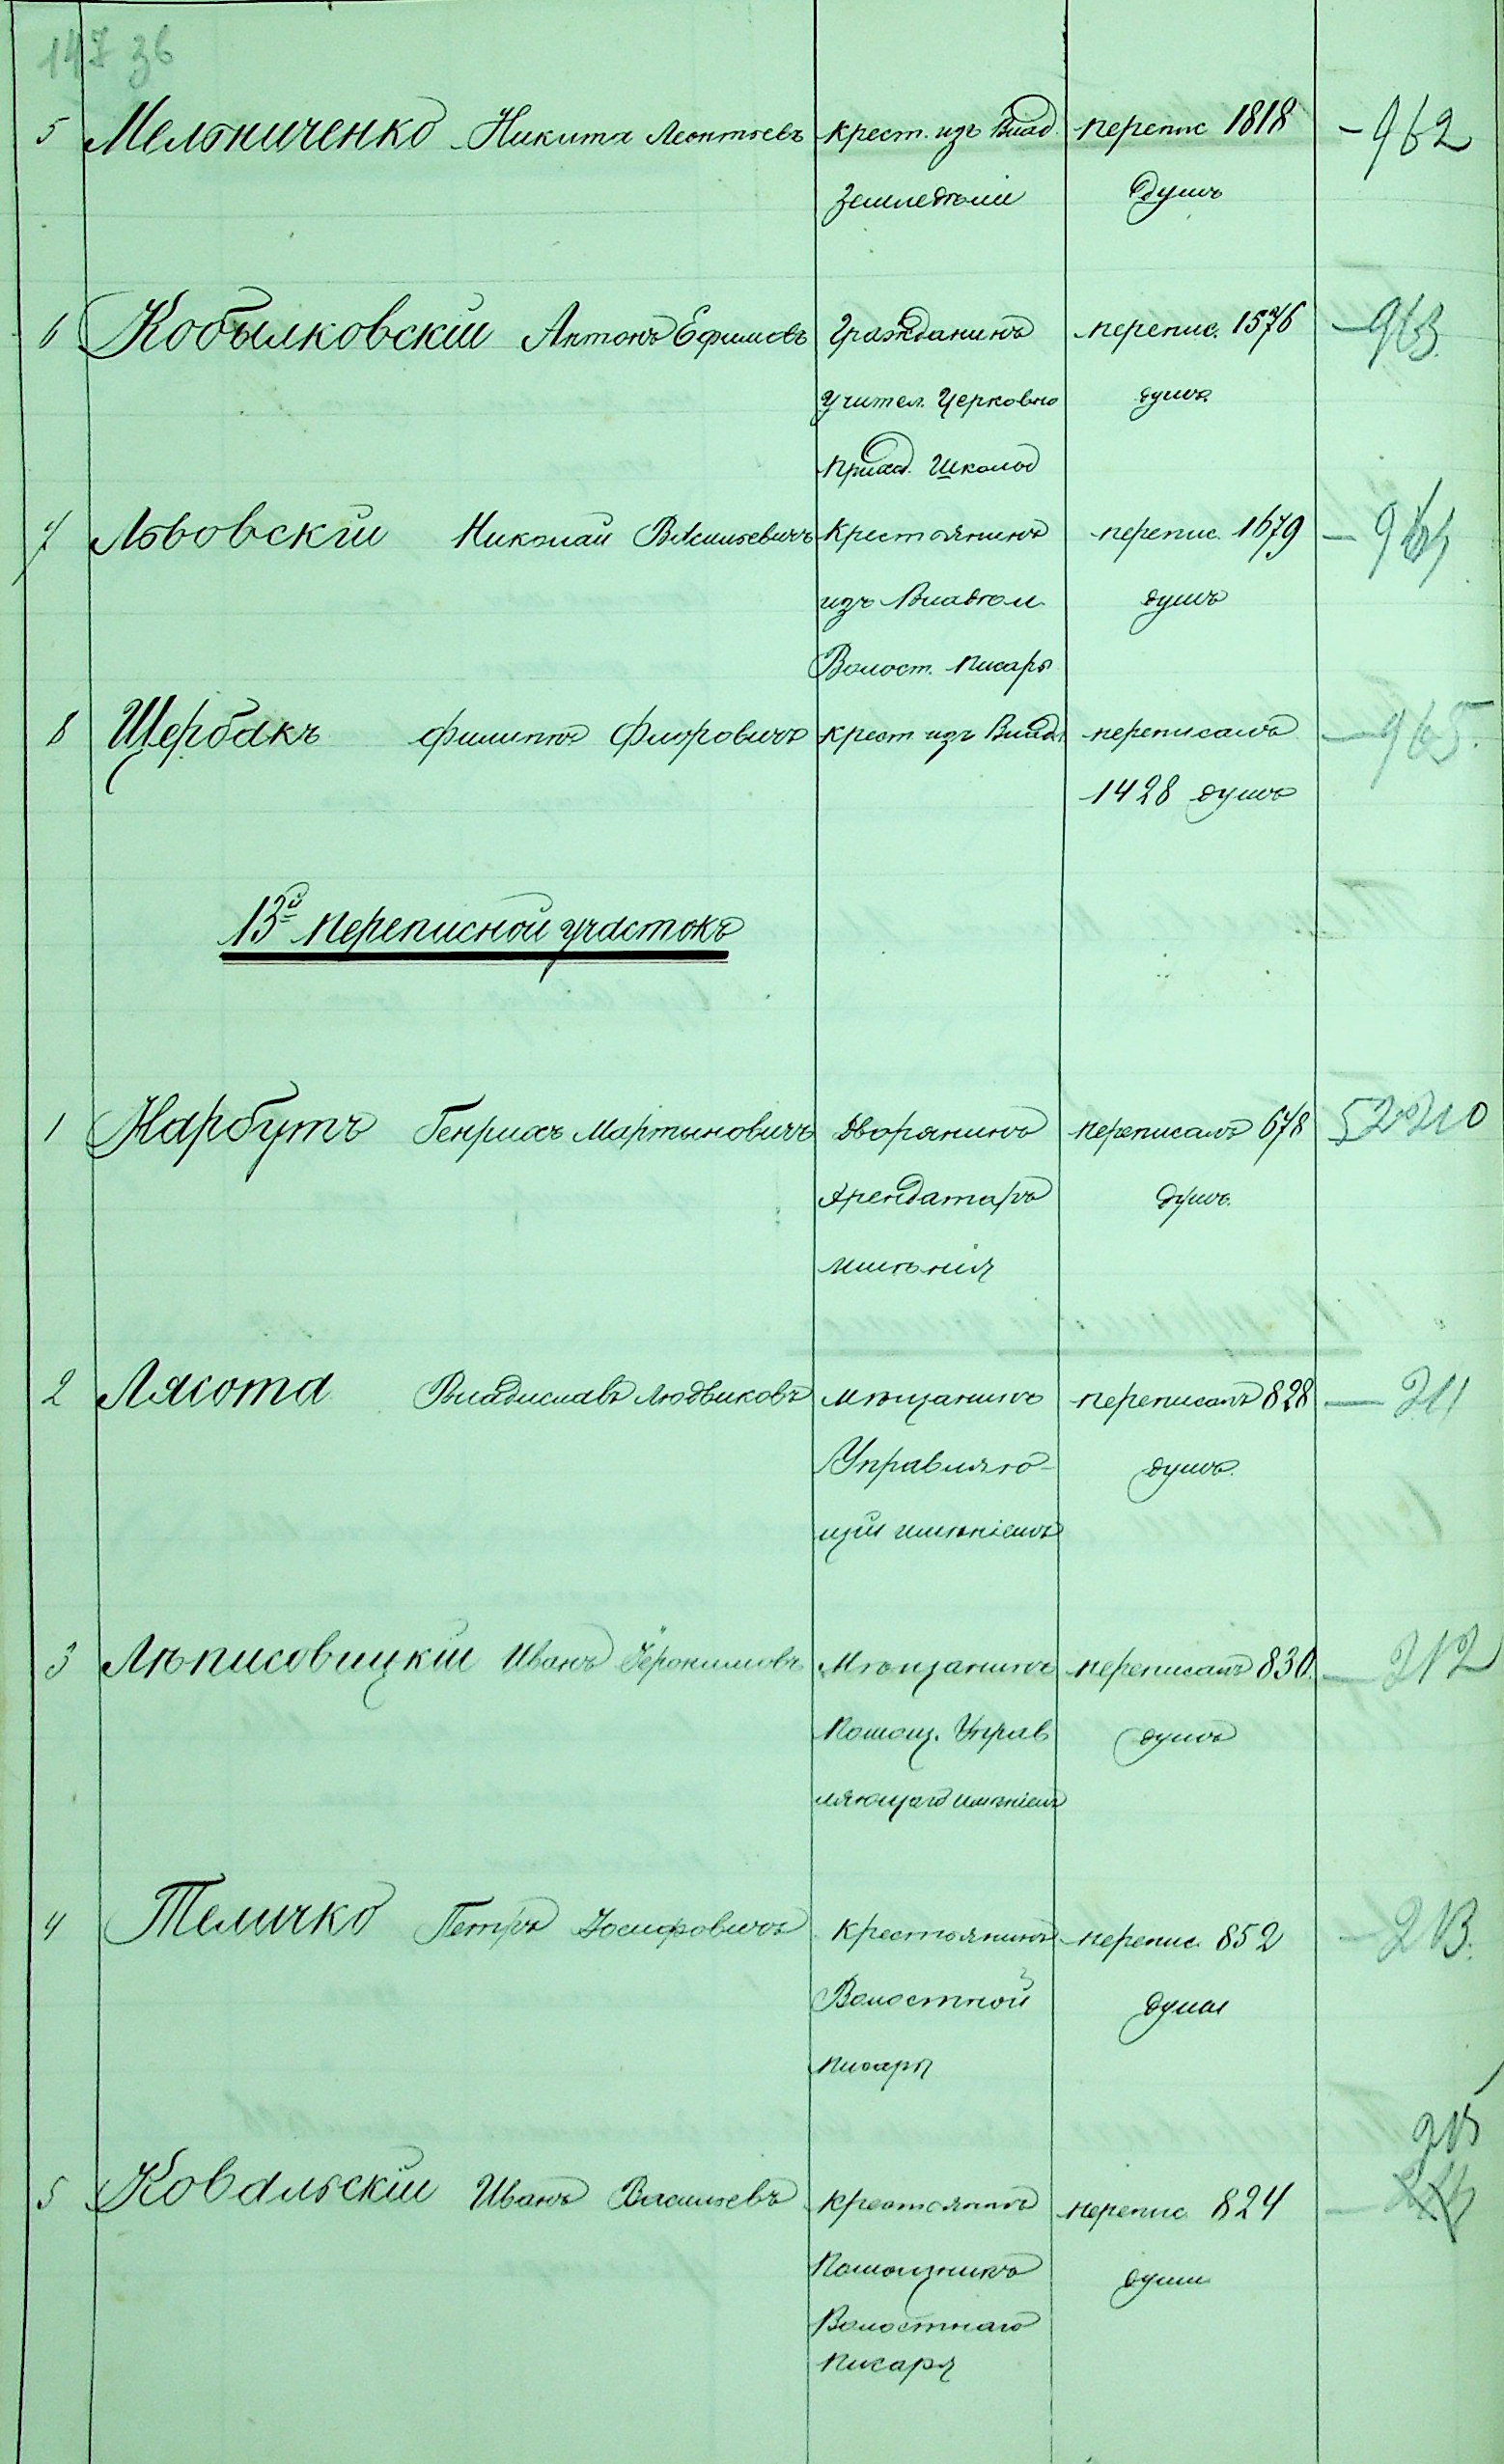 147 зв
5 Мельниченко Никита Леонтьевъ крест. изъ Влад. перепис 1818 – 962
Земледѣлія душъ
6 Кобылковскій Антонъ Ефимовъ Гражданинъ перепис. 1576 – 963
Учител. Церковно душъ
Приход. Школы
7 Львовскій Николай Васильевичъ Крестьянинъ перепис. 1679 – 964
изъ Владѣл. душъ
Волост. Писарь
8 Щербакъ Филиппъ Флоровичъ крест изъ Влад. переписалъ – 965.
1428 душъ
13й переписной участокъ
1 Нарбутъ Генрихъ Мартыновичъ Дворянинъ переписалъ 678 52210
Арендаторъ душъ.
имѣнія
2 Лясота Владиславъ Людвиковъ мѣщанинъ переписалъ 828 — 211
Управляю- душъ.
щій имѣніемъ
3 Лѣписовицкій Иванъ Іеронимовъ Мѣщанинъ переписалъ 830 — 212
Помощ. Управ душъ
ляющаго имѣніемъ
4 Теличко Петръ Іосифовичъ крестьянинъ перепис. 852 – 213.
Волостной души
писарь
215
5 Ковальскій Иванъ Васильевъ крестьянинъ перепис. 824 –
Помощникъ души
Волостнаго
Писаря